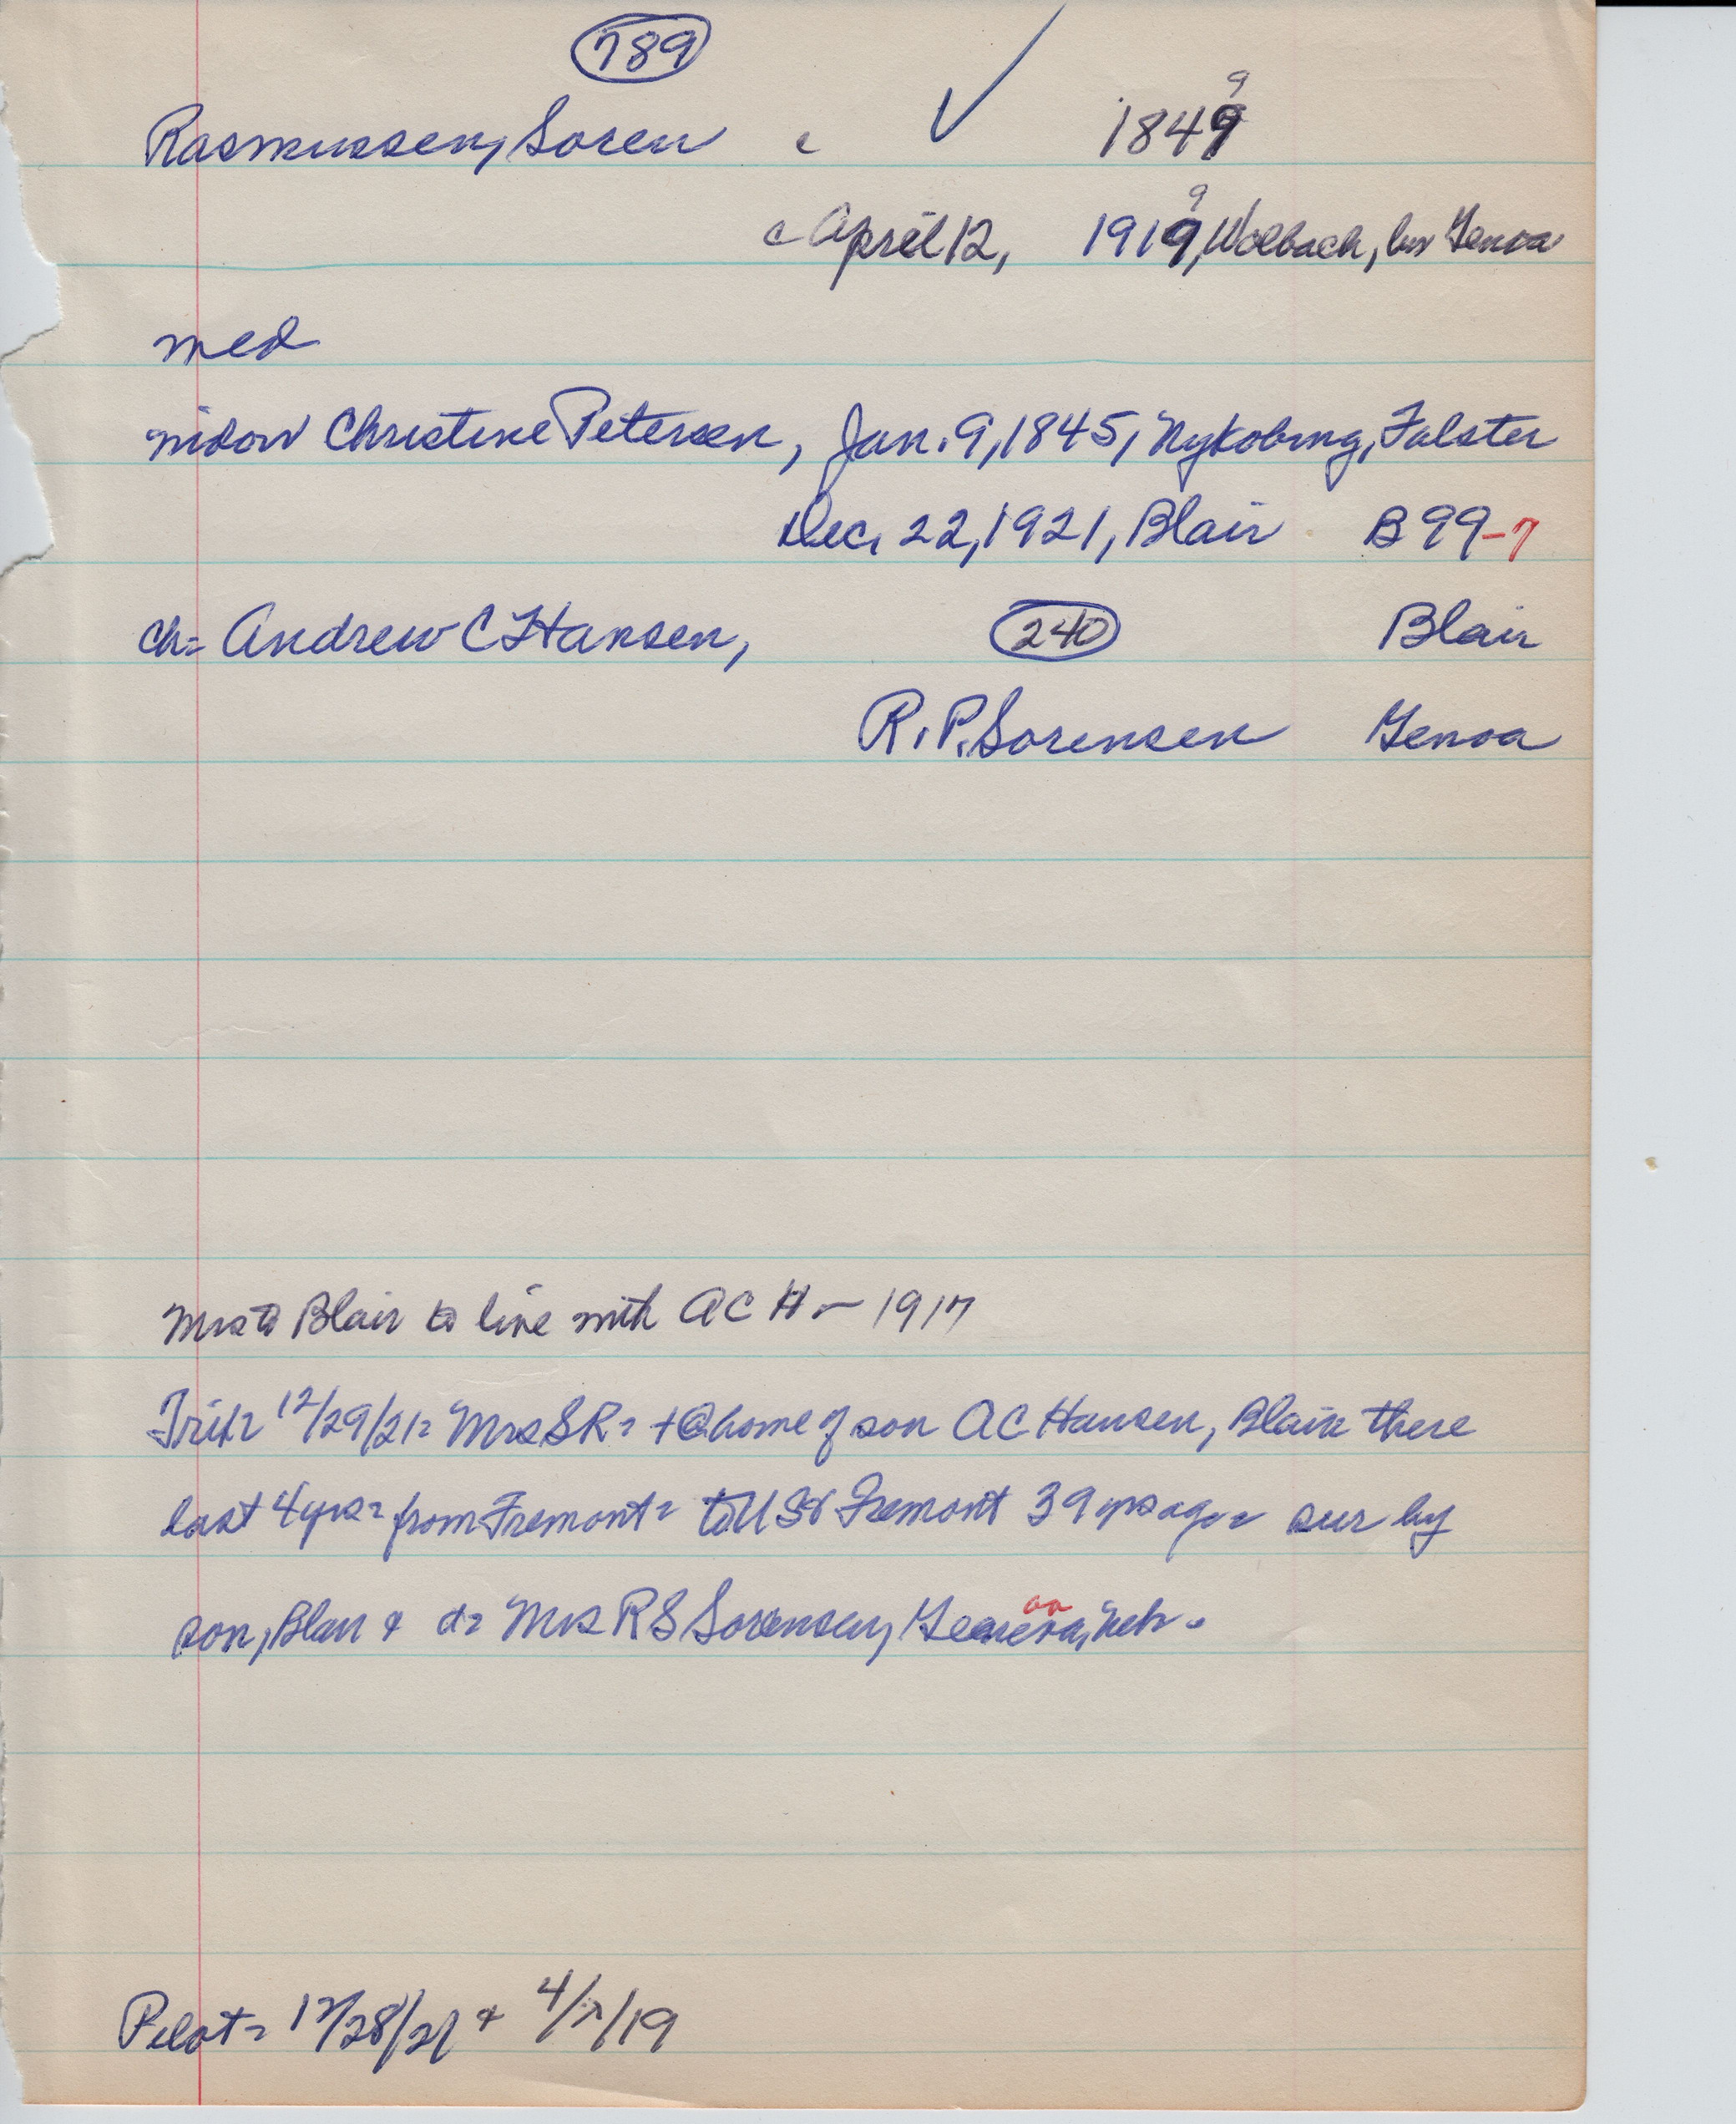 789
Rasmussen, Soren c ✓ 1849 9
c April 12, 1919 9, Wolbach, bur Genoa
med
widow Christine Petersen, Jan. 9, 1845, Nykobing, Falster
Dec. 22, 1921, Blair B99-7
ch= Andrew C Hansen, 240 Blair
R.P. Sorensen Genoa
Mrs to Blair to live with A C H - 1917
Trib= 12/29/21= Mrs S R = + @ home of son A C Hansen, Blair there
last 4 yrs = from Fremont = to US & Fremont 39 yrs ago = sur by
son, Blair & d= Mrs R S Sorensen, oa Neb.
Pilot= 12/28/21 + 4/ /19